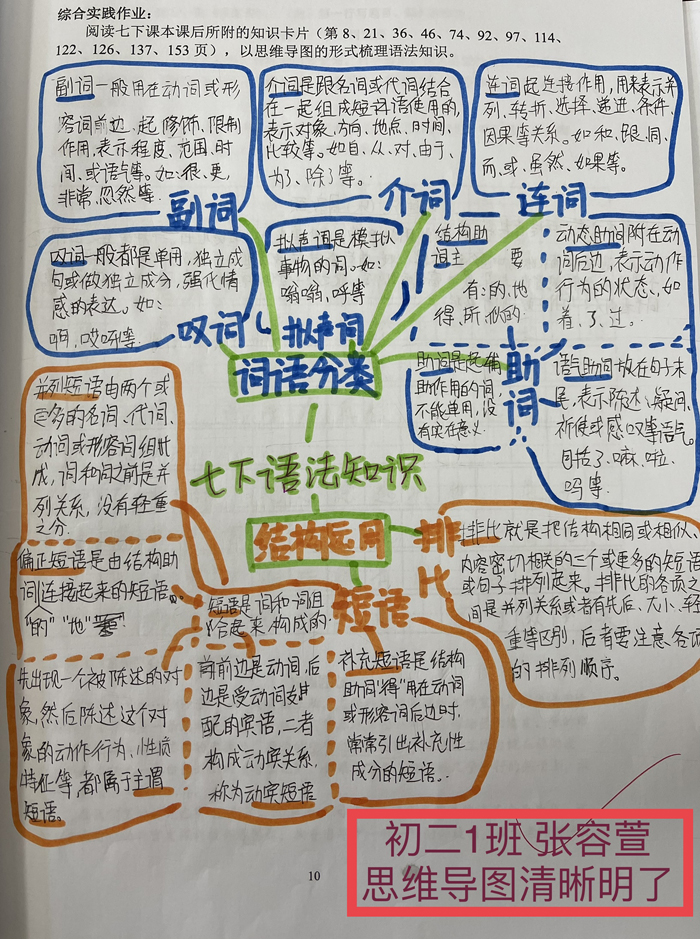 综合实践作业：
阅读七下课本课后所附的知识卡片（第 8、21、36、46、74、92、97、114、
122、126、137、153 页），以思维导图的形式梳理语法知识。
副词一般用在动词或形
容词前边，起修饰、限制
作用，表示程度、范围、时
间、或语气等。如：很、更，
非常、忽然等
副词
介词是跟名词或代词结合
在一起组成短词语使用的，
表示对象、方向、地点、时间、
比较等。如自、从、对、由于、
为了、除了等。
介词
连词起连接作用，用来表示并
列、转折、选择、递进、条件、
因果等关系。如和、跟、同、
而、或、虽然、如果等。
连词
叹词一般都是单用，独立成
句或做独立成分，强化情
感的表达。如：
啊，哎呀等
叹词
拟声词是模拟
事物的词。如：
嗡嗡，呼等
拟声词
结构助
词主要
有：的、地
得、所、似的
动态助词附在动
词后边，表示动作
行为的状态，如
着、了、过。
助词是起辅
助作用的词，
不能单用，没
有实在意义.
助词
语气助词放在句子末
尾，表示陈述、疑问、
祈使或感叹等语气。
包括了、嘛、啦、
吗等
词语分类
七下语法知识
结构运用
并列短语由两个或
更多的名词、代词、
动词或形容词组比
成，词和词之前是并
列关系，没有轻重
之分.
偏正短语是由结构助
词连接起来的短语。
"的" "地"
短语是词和词组
合起来构成的.
短语
先出现一个被陈述的对
象，然后陈述这个对
象的动作行为、性质
特征等，都属于主谓
短语。
当前边是动词，后
边是受动词
配的宾语，二者
构成动宾关系，
称为动宾短语
补充短语是结构
助词"得"用在动词
或形容词后边时，
常常引出补充性
成分的短语。
排比
排比就是把结构相同或相似、
内容密切相关的三个或更多的短语
或句子排列起来。排比的各项之
间是并列关系或者有先后、大小、轻
重等区别，后者要注意各项
的排列顺序。
10
初二1班 张容萱
思维导图清晰明了